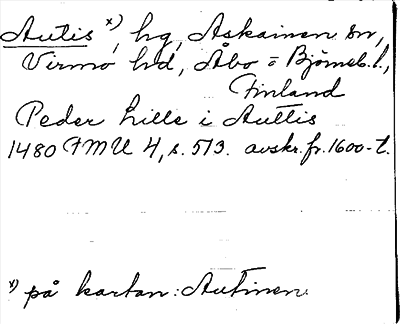 Autis x), hg, Askainen sn,
Virmo hd, Åbo = Björneb. l.,
Finland
Peder Lille i Auttis
1480 FMU 4, s. 513. avskr. fr. 1600-t.
x) på kartan: Autinen